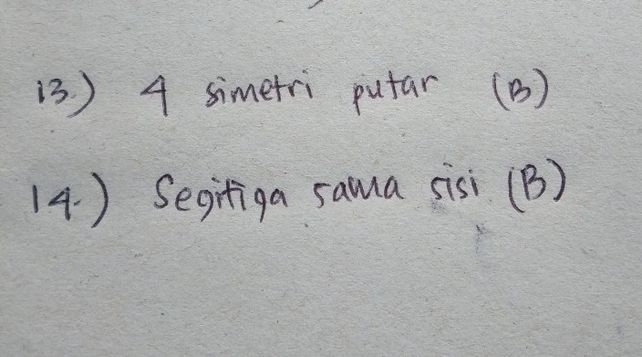 13.) 4 simetri putar (B)
14.) Segitiga sama sisi (B)